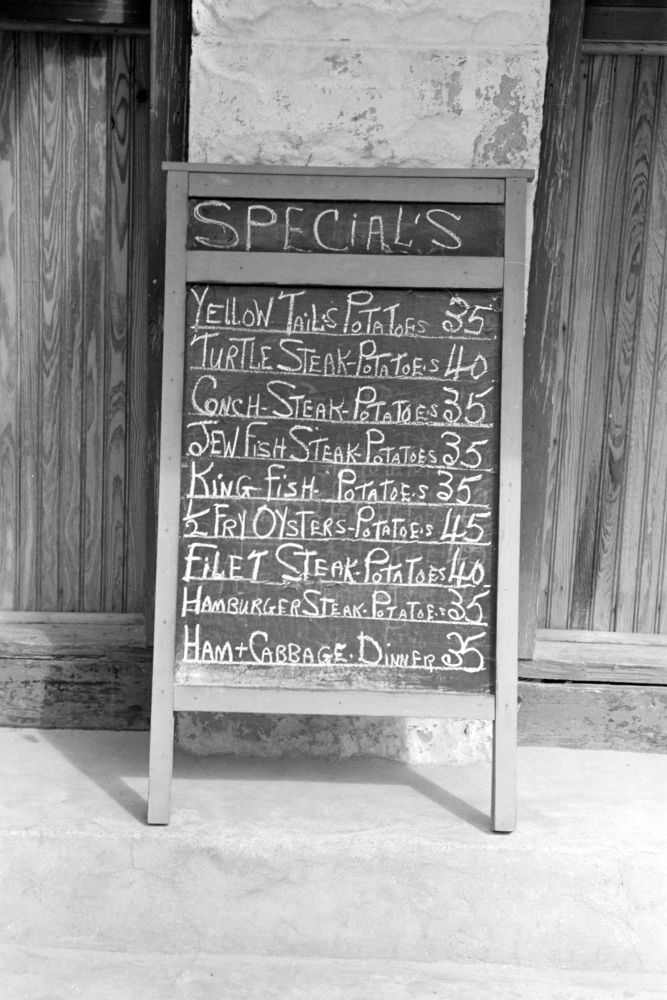 SPECIAL'S
YELLOW TAIL'S POTATOES 35
TURTLE STEAK-POTATOE·S 40
CONCH-STEAK-POTATOE·S 35
JEW FISH STEAK-POTATOES 35
KING-FISH- POTATOE·S 35
½ FRY OYSTERS-POTATOE·S 45
FILET STEAK-POTATOES 40
HAMBURGER STEAK-POTATOE·S 35
HAM+CABBAGE·DINNER 35